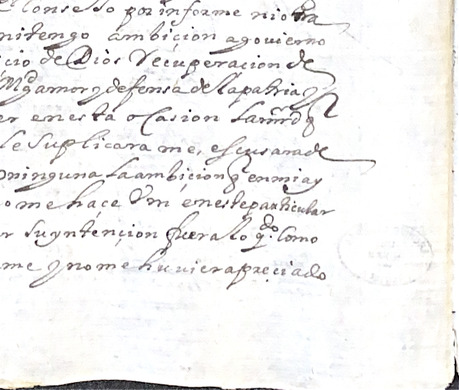 el consejo por informe ni otra
ni tengo ambicion a govierno
cio de Dios Recuperacion de
Mgd amor y defensa de la patria y
er en esta ocasion la mrd q
le suplicara me, escusara de
ninguna la ambicion q en mi ay
o me hace Vm en este particular
r su yntencion fuera lo q. como
me y no me huviera preciado